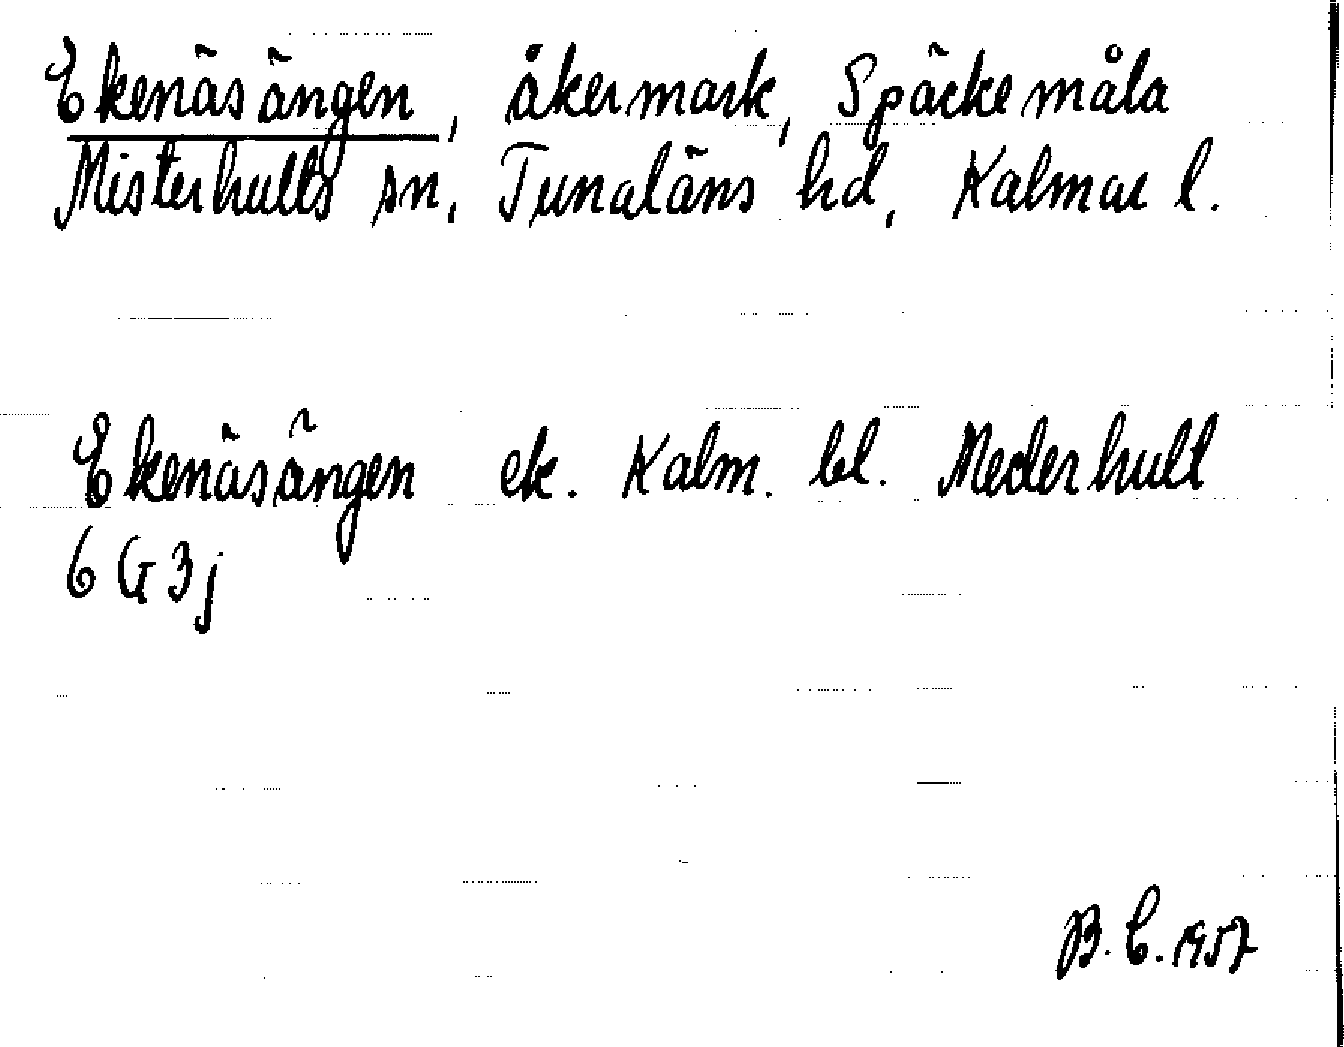 Ekenäsängen, åkermark, Späckemåla
Misterhults sn, Tunaläns hd, Kalmar l.
Ekenäsängen ek. Kalm. bl. Mederhult
6 G 3j
B. C. 1957